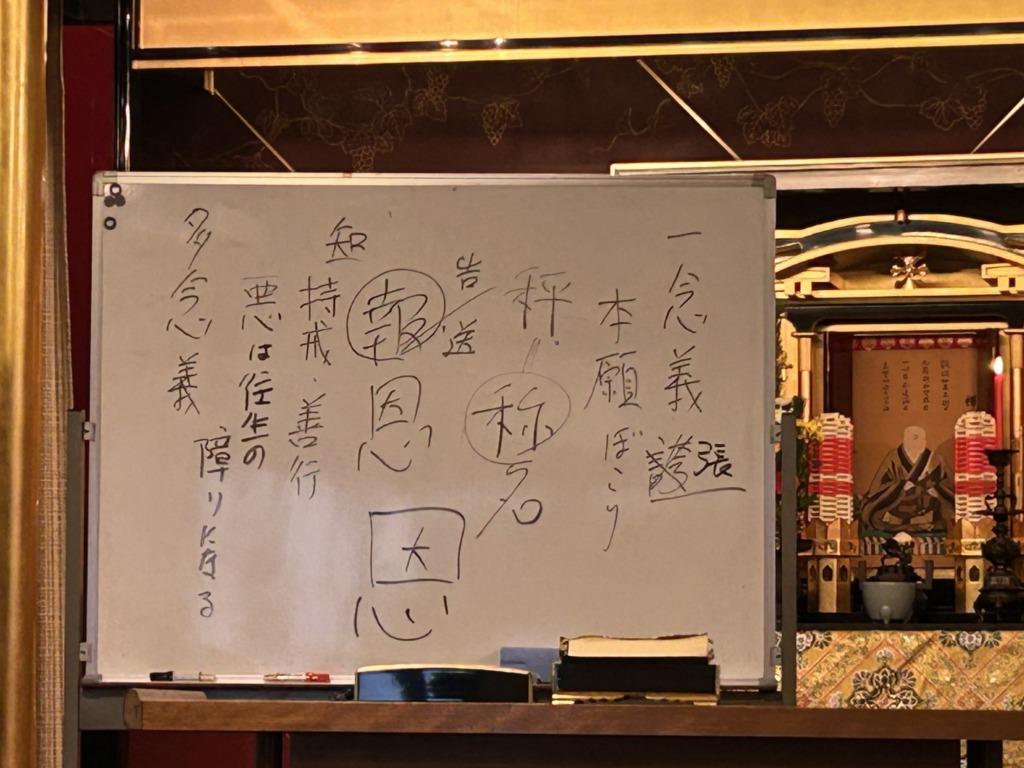 一念義
誇張
本願ぼこり
秤〃称名
告
送
報恩
因心
知
持戒・善行
悪は往生の
障りになる
多念義